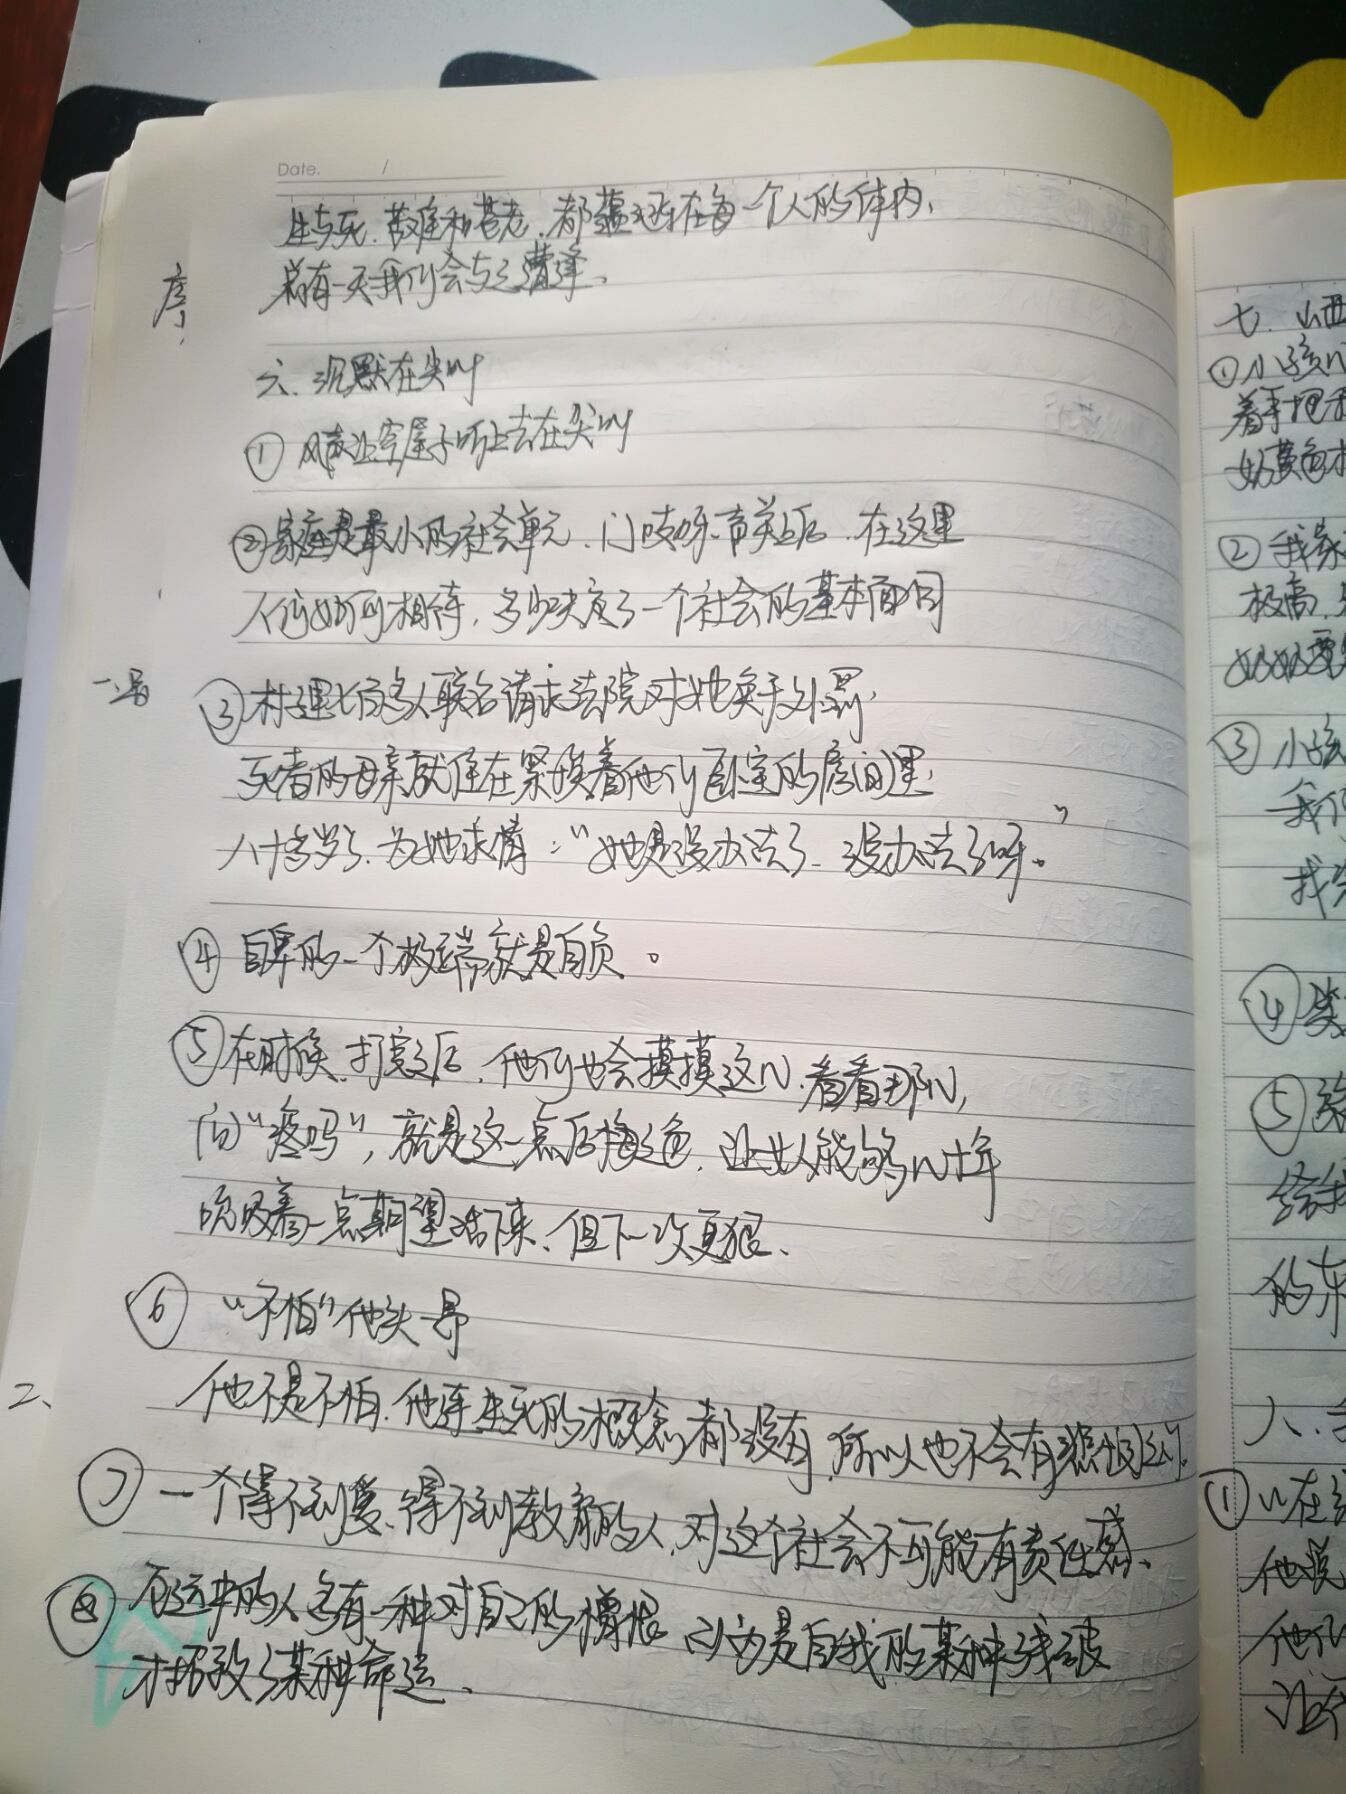 Date. /
生与死、苦难和苍老、都蕴涵在每一个人的体内、
总有一天我们会与之遭逢、
序、
六、沉默在尖叫
① 风声让空屋子听上去在尖叫
② 家庭是最小的社会单元、门吱呀一声关上后、在这里
人们如何相待、多少决定了一个社会的基本面目
一、
③ 村里七百多人联名请求法院对她免于刑罚、
死者的母亲就住在紧挨着他们卧室的房间里、
八十多岁了、为她求情："她是没办法了、没办法了呀。"
④ 自卑的一个极端就是自负。
⑤ 在时候、打完之后、他们也会摸摸这儿、看看那儿,
问"疼吗", 就是这一点后悔之色、让女人能够几十年
吮吸着一点期望活下来、但下一次更狠、
⑥ "不怕"他头一昂
二、
他不是不怕、他连生死的概念都没有, 所以也不会有悲悯之心。
⑦ 一个得不到爱、得不到教育的人、对这个社会不可能有责任感、
⑧ 厄运中的人多有一种对自己的憎恨、以为是自我的某种残破
才招致了某种命运、
七、山西
① 小孩儿
着手把
奶黄色
② 我家
极高、
奶奶要
③ 小孩
我们
找
④
⑤
给我
的东
八、
① "在
他说
他们
让